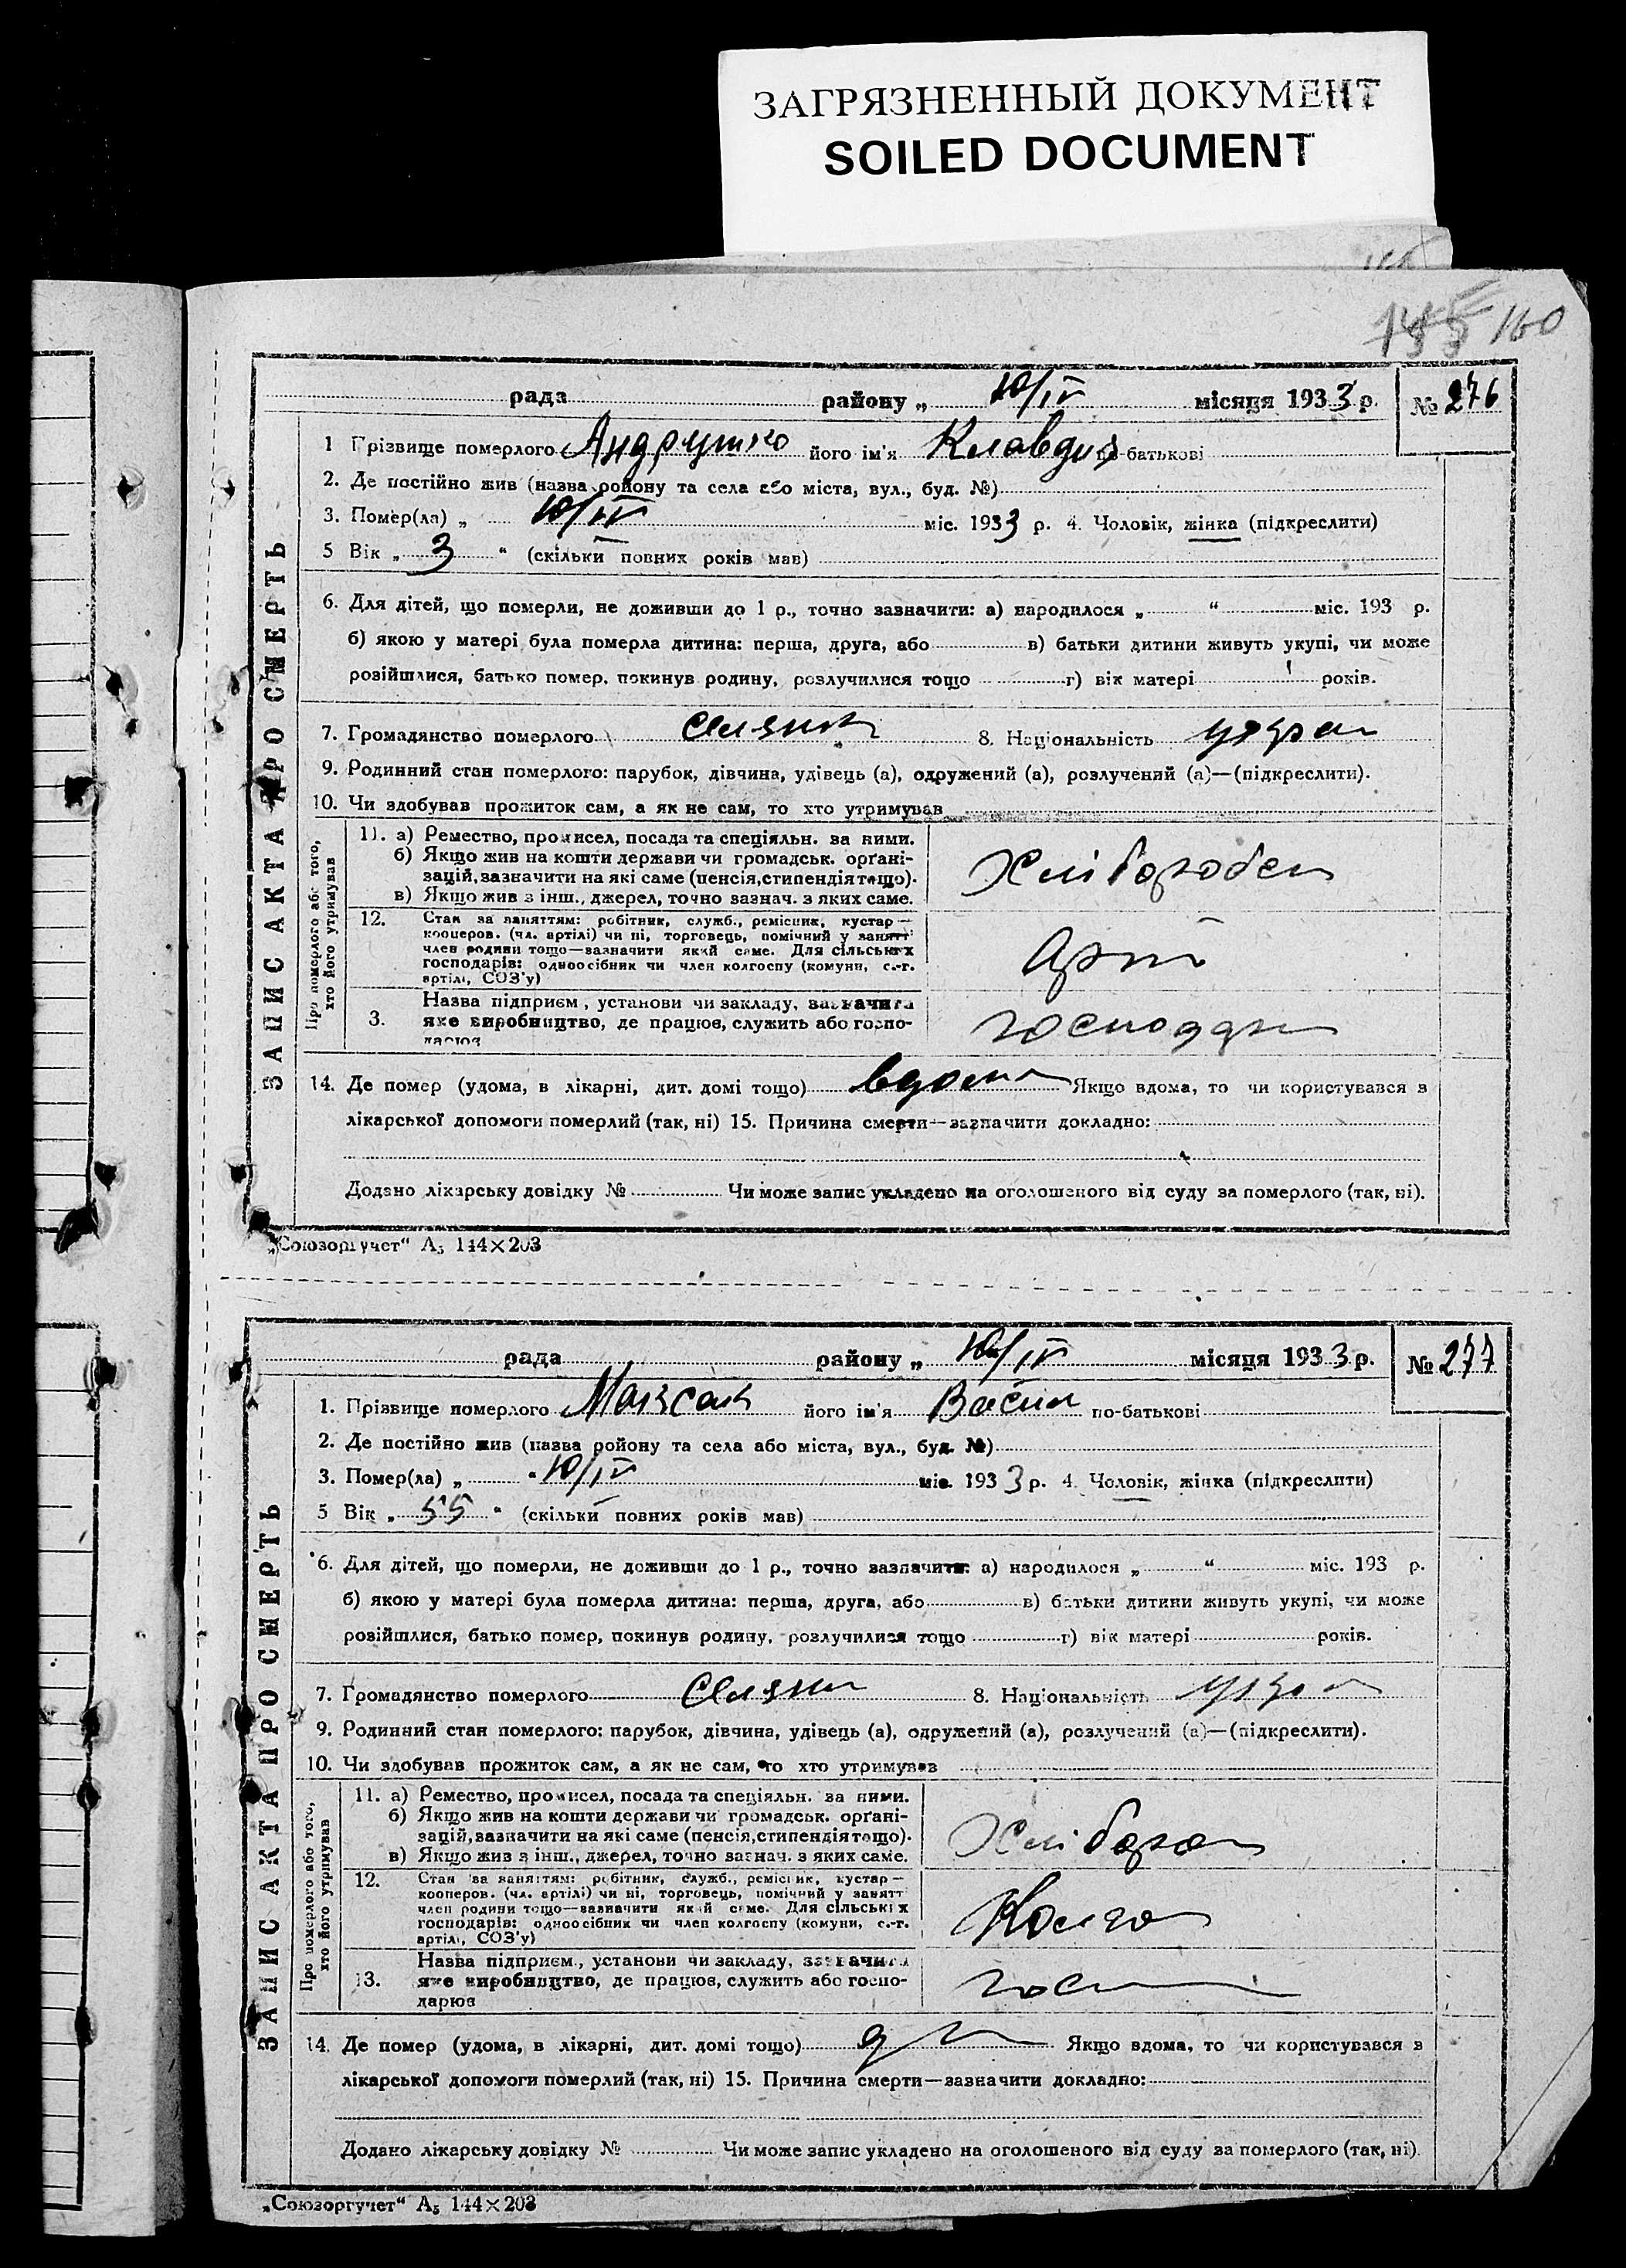 ЗАГРЯЗНЕННЫЙ ДОКУМЕНТ
SOILED DOCUMENT
160
рада району „ 10/IV місяця 1933 р. № 276
ЗАПИС АКТА ПРО СМЕРТЬ
1 Прізвище померлого Андрушко його ім'я Клавдия по-батькові
2. Де постійно жив (назва ройону та села або міста, вул., буд. №)
3. Помер(ла) „ 10/IV міс. 1933 р. 4. Чоловік, жінка (підкреслити)
5 Вік „ 3 “ (скільки повних років мав)
6. Для дітей, що померли, не доживши до 1 р., точно зазначити: а) народилося „ “ міс. 193 р.
б) якою у матері була померла дитина: перша, друга, або в) батьки дитини живуть укупі, чи може
розійшлися, батько помер, покинув родину, розлучилися тощо г) вік матері років.
7. Громадянство померлого селянк 8. Національність укра
9. Родинний стан померлого: парубок, дівчина, удівець (а), одружений (а), розлучений (а)—(підкреслити).
10. Чи здобував прожиток сам, а як не сам, то хто утримував
Про померлого або того,
хто його утримував
11. а) Ремество, промисел, посада та спеціяльн. за ними.
б) Якщо жив на кошти держави чи громадськ. орґані-
зацій, зазначити на які саме (пенсія, стипендія тощо).
в) Якщо жив з інш., джерел, точно зазнач. з яких саме.
Хлібороб
12. Стан за заняттям: робітник, служб., ремісник, кустар—
кооперов. (чл. артілі) чи ні, торговець, помічний у занятт
член родини тощо—зазначити який саме. Для сільських
господарів: одноосібник чи член колгоспу (комуни, с.-г.
артілі, СОЗ'у)
Арті
Назва підприєм, установи чи закладу, зазначити
3. яке виробництво, де працює, служить або госпо-
дарює
господар
14. Де помер (удома, в лікарні, дит. домі тощо) вдома Якщо вдома, то чи користувався в
лікарської допомоги померлий (так, ні) 15. Причина смерти—зазначити докладно:
Додано лікарську довідку № Чи може запис укладено на оголошеного від суду за померлого (так, ні).
„Союзоргучет“ А5 144×203
рада району „ 10/IV місяця 1933 р. № 277
ЗАПИС АКТА ПРО СМЕРТЬ
1. Прізвище померлого Максак його ім'я Васил по-батькові
2. Де постійно жив (назва ройону та села або міста, вул., буд. №)
3. Помер(ла) „ “ 10/IV міс. 1933 р. 4. Чоловік, жінка (підкреслити)
5 Вік „ 55 “ (скільки повних років мав)
6. Для дітей, що померли, не доживши до 1 р., точно зазначити: а) народилося „ “ міс. 193 р.
б) якою у матері була померла дитина: перша, друга, або в) батьки дитини живуть укупі, чи може
розійшлися, батько помер, покинув родину, розлучилися тощо г) вік матері років.
7. Громадянство померлого селян 8. Національність укра
9. Родинний стан померлого: парубок, дівчина, удівець (а), одружений (а), розлучений (а)—(підкреслити).
10. Чи здобував прожиток сам, а як не сам, то хто утримував
Про померлого або того,
хто його утримував
11. а) Ремество, промисел, посада та спеціяльн. за ними.
б) Якщо жив на кошти держави чи громадськ. орґані-
зацій, зазначити на які саме (пенсія, стипендія тощо).
в) Якщо жив з інш., джерел, точно зазнач. з яких саме.
Хлібороб
12. Стан за заняттям: робітник, служб., ремісник, кустар—
кооперов. (чл. артілі) чи ні, торговець, помічний у занятт
член родини тощо—зазначити який саме. Для сільських
господарів: одноосібник чи член колгоспу (комуни, с.-г.
артілі, СОЗ'у)
Колго
Назва підприєм., установи чи закладу, зазначити
13. яке виробництво, де працює, служить або госпо-
дарює
гос
14. Де помер (удома, в лікарні, дит. домі тощо) Якщо вдома, то чи користувався в
лікарської допомоги померлий (так, ні) 15. Причина смерти—зазначити докладно:
Додано лікарську довідку № Чи може запис укладено на оголошеного від суду за померлого (так, ні).
„Союзоргучет“ А5 144×203